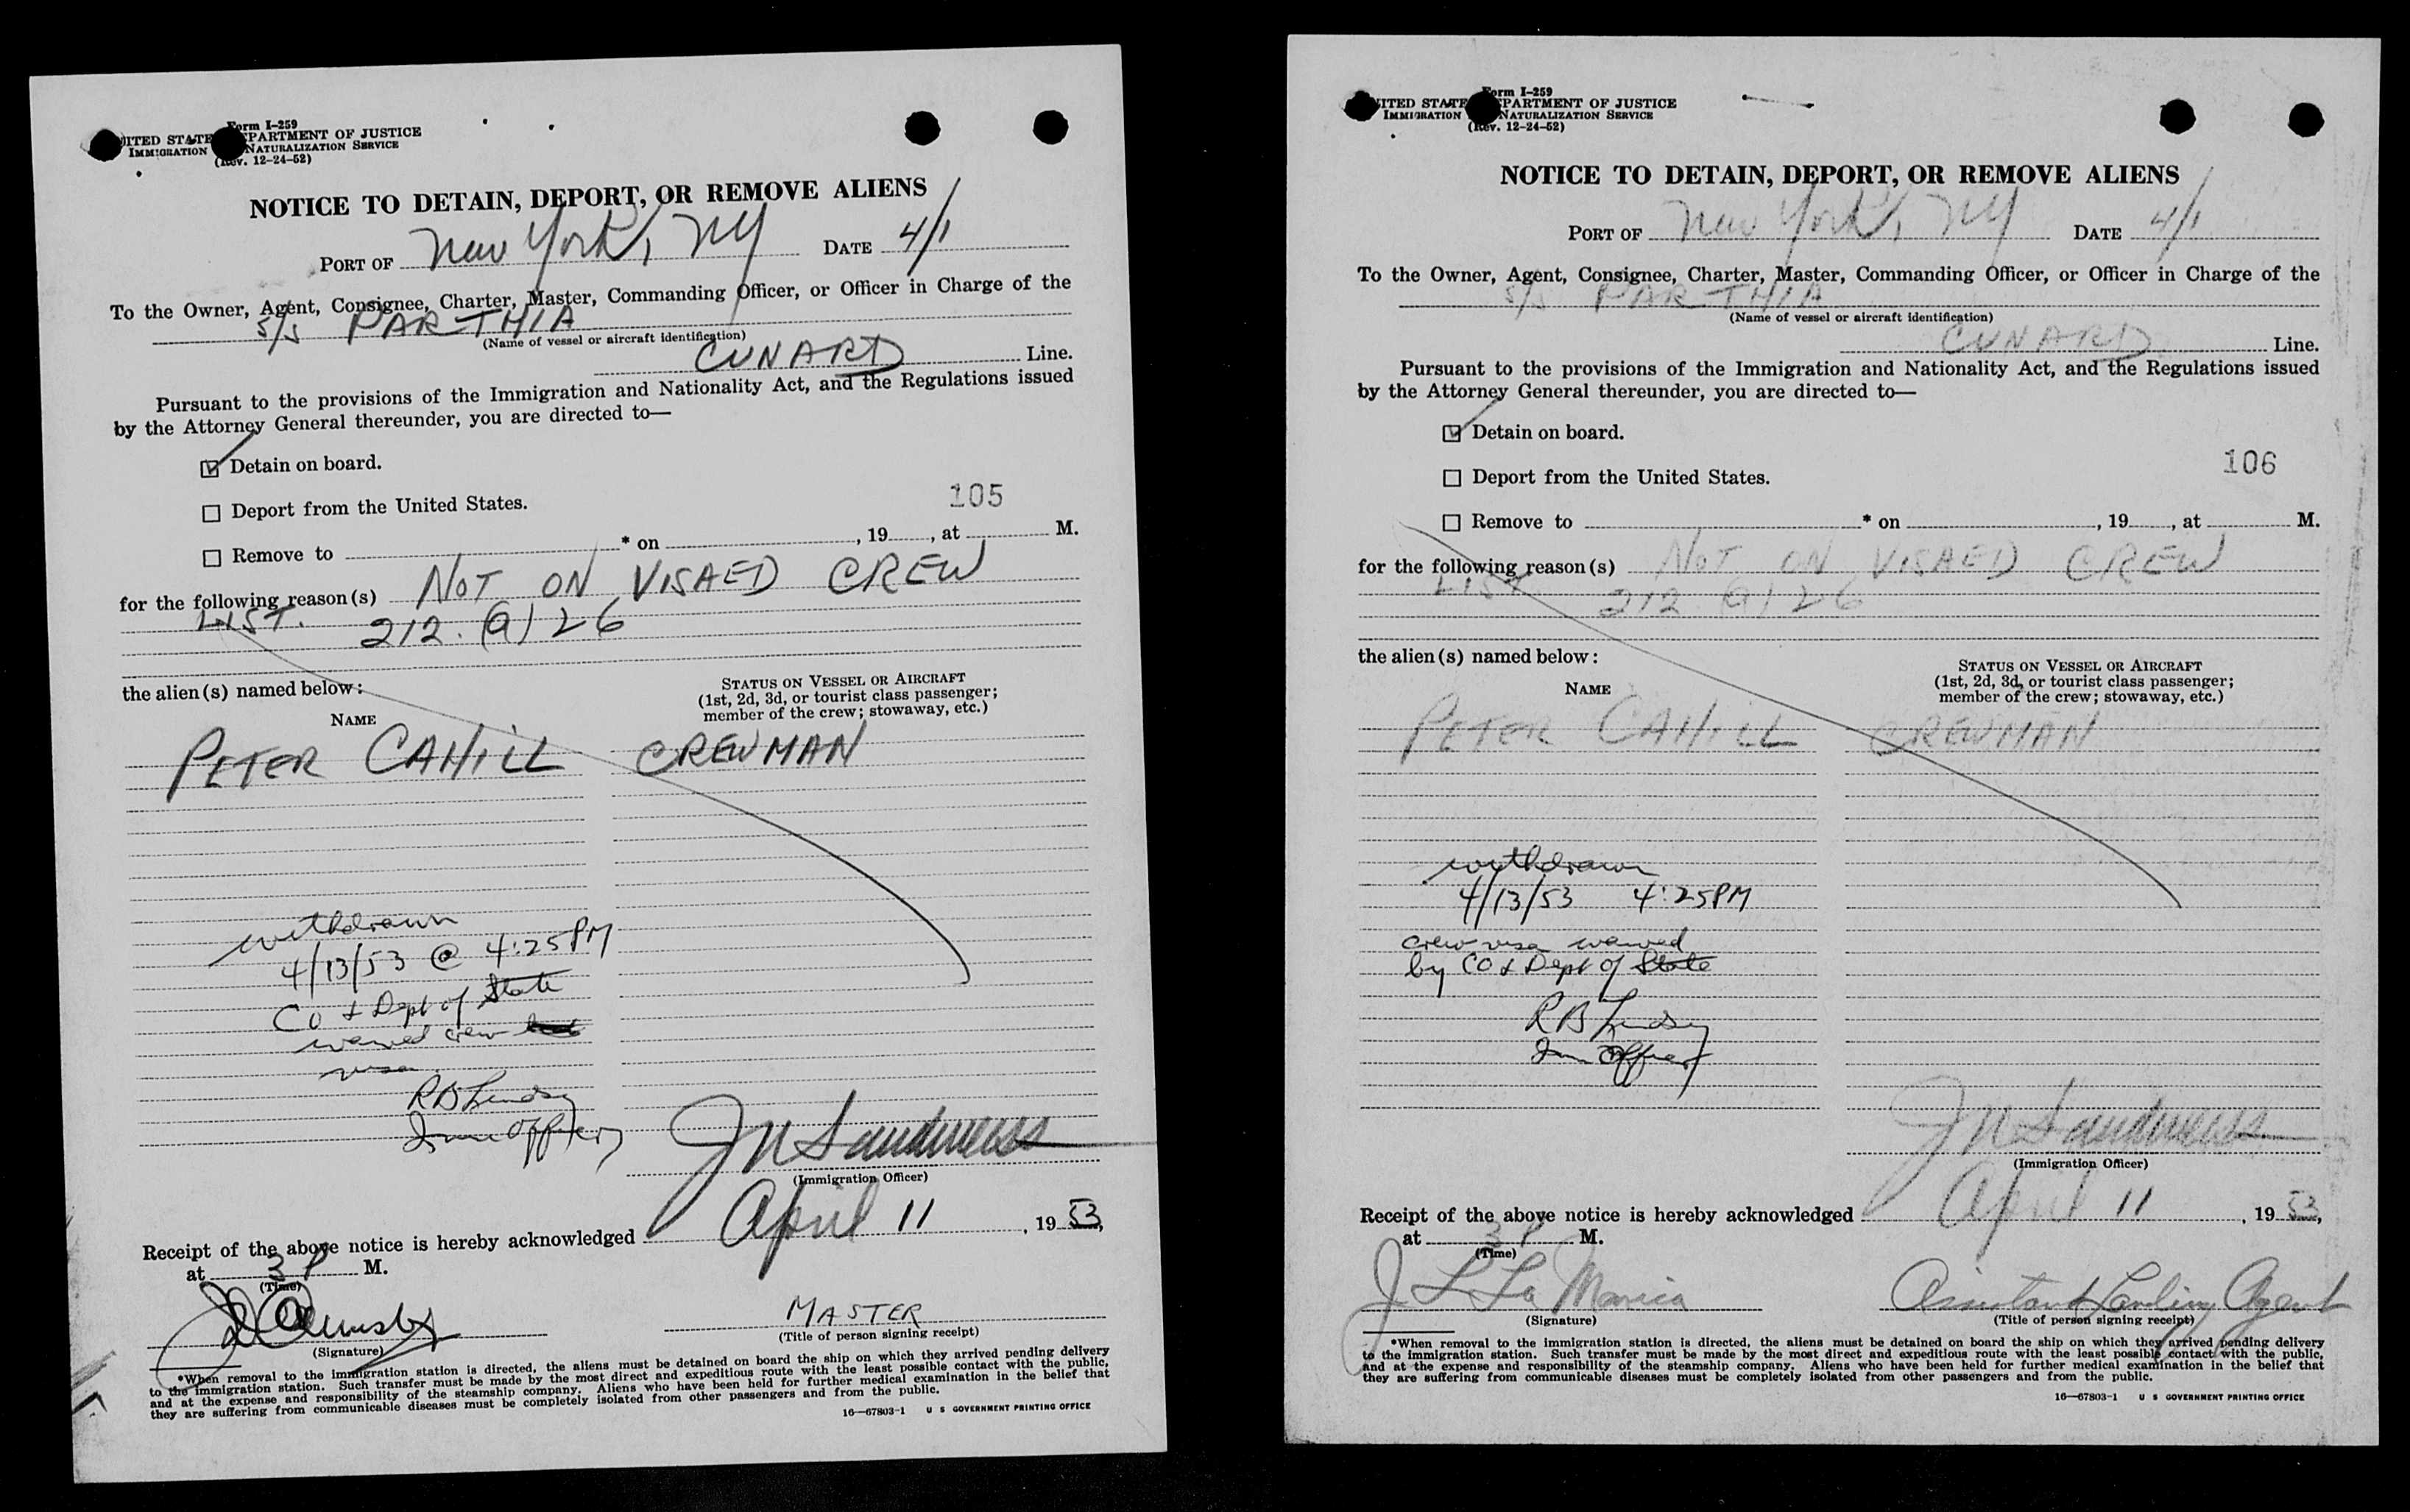 Form I-259
UNITED STATES DEPARTMENT OF JUSTICE
IMMIGRATION NATURALIZATION SERVICE
(Rev. 12-24-52)
NOTICE TO DETAIN, DEPORT, OR REMOVE ALIENS
PORT OF New York, NY DATE 4/1
To the Owner, Agent, Consignee, Charter, Master, Commanding Officer, or Officer in Charge of the
S/S PARTHIA
(Name of vessel or aircraft identification)
CUNARD Line.
Pursuant to the provisions of the Immigration and Nationality Act, and the Regulations issued
by the Attorney General thereunder, you are directed to—
Detain on board.
Deport from the United States.
105
Remove to * on , 19 , at M.
for the following reason(s) NOT ON VISAED CREW
LIST. 212.(a)26
the alien(s) named below:
STATUS ON VESSEL OR AIRCRAFT
(1st, 2d, 3d, or tourist class passenger;
member of the crew; stowaway, etc.)
NAME
PETER CAHILL CREWMAN
withdrawn
4/13/53 @ 4:25 PM
CO & Dept of State
waived crew
visa.
RB Lindsey
Imm Officer
J N Sandweiss
(Immigration Officer)
Receipt of the above notice is hereby acknowledged April 11, 1953,
at 3 P M.
(Time)
MASTER
(Signature)
(Title of person signing receipt)
*When removal to the immigration station is directed, the aliens must be detained on board the ship on which they arrived pending delivery
to the immigration station. Such transfer must be made by the most direct and expeditious route with the least possible contact with the public,
and at the expense and responsibility of the steamship company. Aliens who have been held for further medical examination in the belief that
they are suffering from communicable diseases must be completely isolated from other passengers and from the public.
16—67803-1 U S GOVERNMENT PRINTING OFFICE
Form I-259
UNITED STATES DEPARTMENT OF JUSTICE
IMMIGRATION NATURALIZATION SERVICE
(Rev. 12-24-52)
NOTICE TO DETAIN, DEPORT, OR REMOVE ALIENS
PORT OF New York, NY DATE 4/1
To the Owner, Agent, Consignee, Charter, Master, Commanding Officer, or Officer in Charge of the
S/S PARTHIA
(Name of vessel or aircraft identification)
CUNARD Line.
Pursuant to the provisions of the Immigration and Nationality Act, and the Regulations issued
by the Attorney General thereunder, you are directed to—
Detain on board.
106
Deport from the United States.
Remove to * on , 19 , at M.
for the following reason(s) NOT ON VISAED CREW
LIST. 212 (a) 26
the alien(s) named below:
STATUS ON VESSEL OR AIRCRAFT
(1st, 2d, 3d, or tourist class passenger;
member of the crew; stowaway, etc.)
NAME
PETER CAHILL CREWMAN
withdrawn
4/13/53 4:25 PM
crew visa waived
by CO & Dept of State
RB Lindsey
Imm Officer
J N Sandweiss
(Immigration Officer)
Receipt of the above notice is hereby acknowledged April 11, 1953,
at 3 P M.
(Time)
J L La Manica Assistant Landing Agent
(Signature) (Title of person signing receipt)
*When removal to the immigration station is directed, the aliens must be detained on board the ship on which they arrived pending delivery
to the immigration station. Such transfer must be made by the most direct and expeditious route with the least possible contact with the public,
and at the expense and responsibility of the steamship company. Aliens who have been held for further medical examination in the belief that
they are suffering from communicable diseases must be completely isolated from other passengers and from the public.
16—67803-1 U S GOVERNMENT PRINTING OFFICE